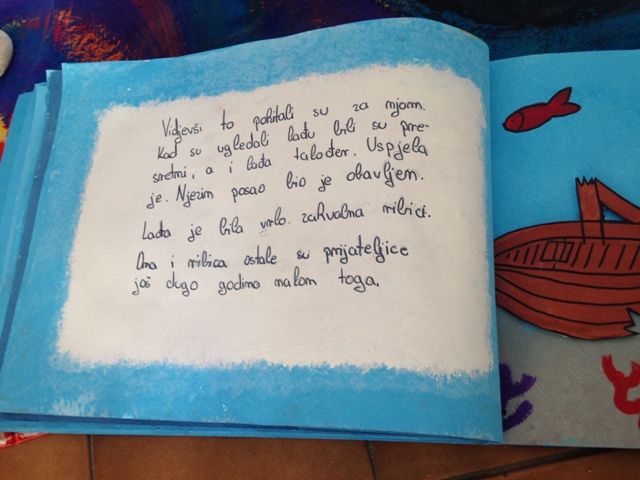 Vidjevši to pohitali su za njom.
Kad su ugledali lađu bili su pre-
sretni, a i lađa također. Uspjela
je. Njezin posao bio je obavljen.
Lađa je bila vrlo zahvalna ribici.
Ona i ribica ostale su prijateljice
još dugo godina nakon toga.